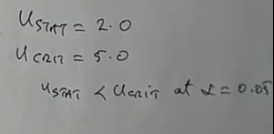 U_STAT = 2.0
U_CRIT = 5.0
U_STAT < U_CRIT at α = 0.05